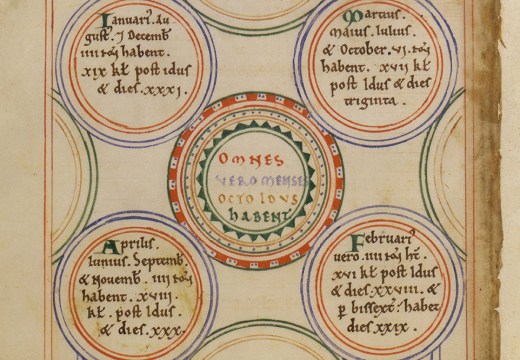 Ianuari᷒. Au
gust᷒. ⁊ Decemb̄
iiii noñ habent.
xix kł post idus
& dies .xxxi.
Martius.
Maius. Iulius.
& October. vi. noñ
habent. xvii kł
post Idus & dies
triginta.
OMNES
VERO MENSES
OCTO IDUS
HABENT
Aprilis.
Iunius. Septemb̄.
& Novemb̄. iiii noñ
habent. xviii.
kł. post idus.
& dies .xxx.
Februari᷒
vero. iiii noñ hñt.
xvi kł post Idus
& dies .xxviii. &
ꝑ bissext̄. habet
dies xxix.